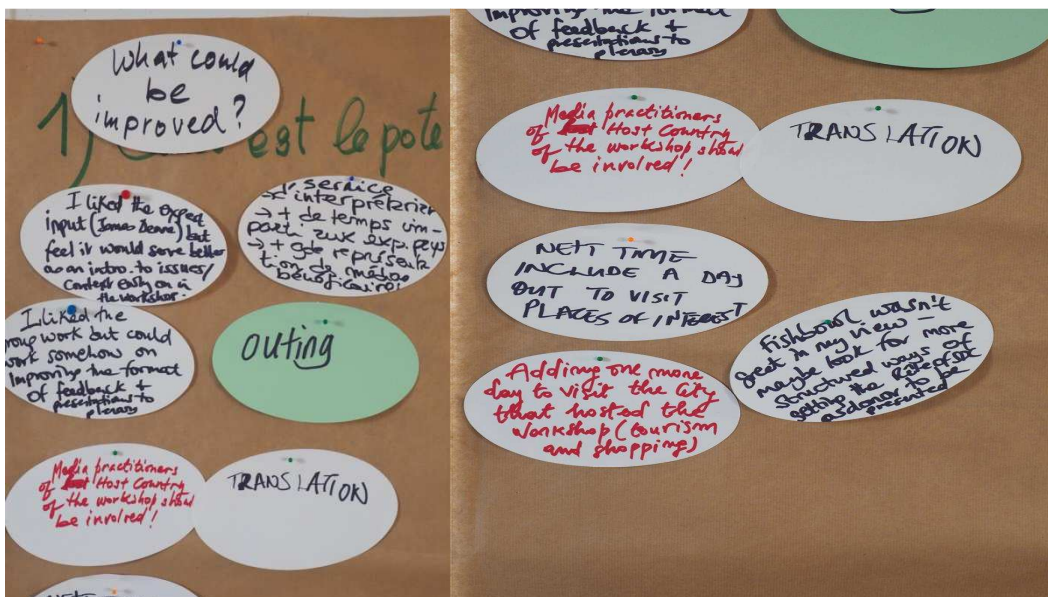 What could
be
improved?
1) est le pote
I liked the expert
input (James Deane) but
feel it would serve better
as an intro. to issues/
context early on in
the workshop.
service
interprétariat
→ + de temps im-
parti aux exp. pays
→ + gde représenta
tion de médias
bénéficiaires
I liked the
group work but could
work somehow on
improving the format
of feedback +
presentations to
plenary
outing
Media practitioners
of Host Country
of the workshop should
be involved!
TRANSLATION
improving the format
of feedback +
presentations to
plenary
Media practitioners
of Host Country
of the workshop should
be involved!
TRANSLATION
NEXT TIME
INCLUDE A DAY
OUT TO VISIT
PLACES OF INTEREST
Fishbowl wasn't
great in my view –
maybe look for more
structured ways of
getting the
as donor to be
presented
Adding one more
day to visit the City
that hosted the
workshop (tourism
and shopping)